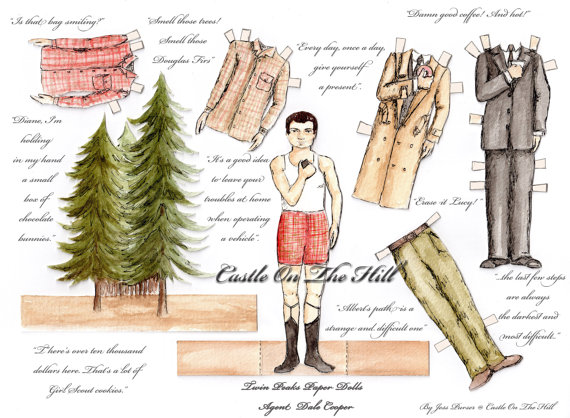 "Is that bag smiling?"
"Smell those trees!
Smell those
Douglas Firs"
"Damn good coffee! And hot!"
"Every day, once a day,
give yourself
a present".
"Diane, I'm
holding
in my hand
a small
box of
chocolate
bunnies."
"It's a good idea
to leave your
troubles at home
when operating
a vehicle".
"Erase it Lucy!"
Castle On The Hill
"...the last few steps
are always
the darkest and
most difficult."
"Albert's path is a
strange and difficult one"
"There's over ten thousand
dollars here. That's a lot of
Girl Scout cookies."
Twin Peaks Paper Dolls
Agent Dale Cooper
By Jess Purser @ Castle On The Hill